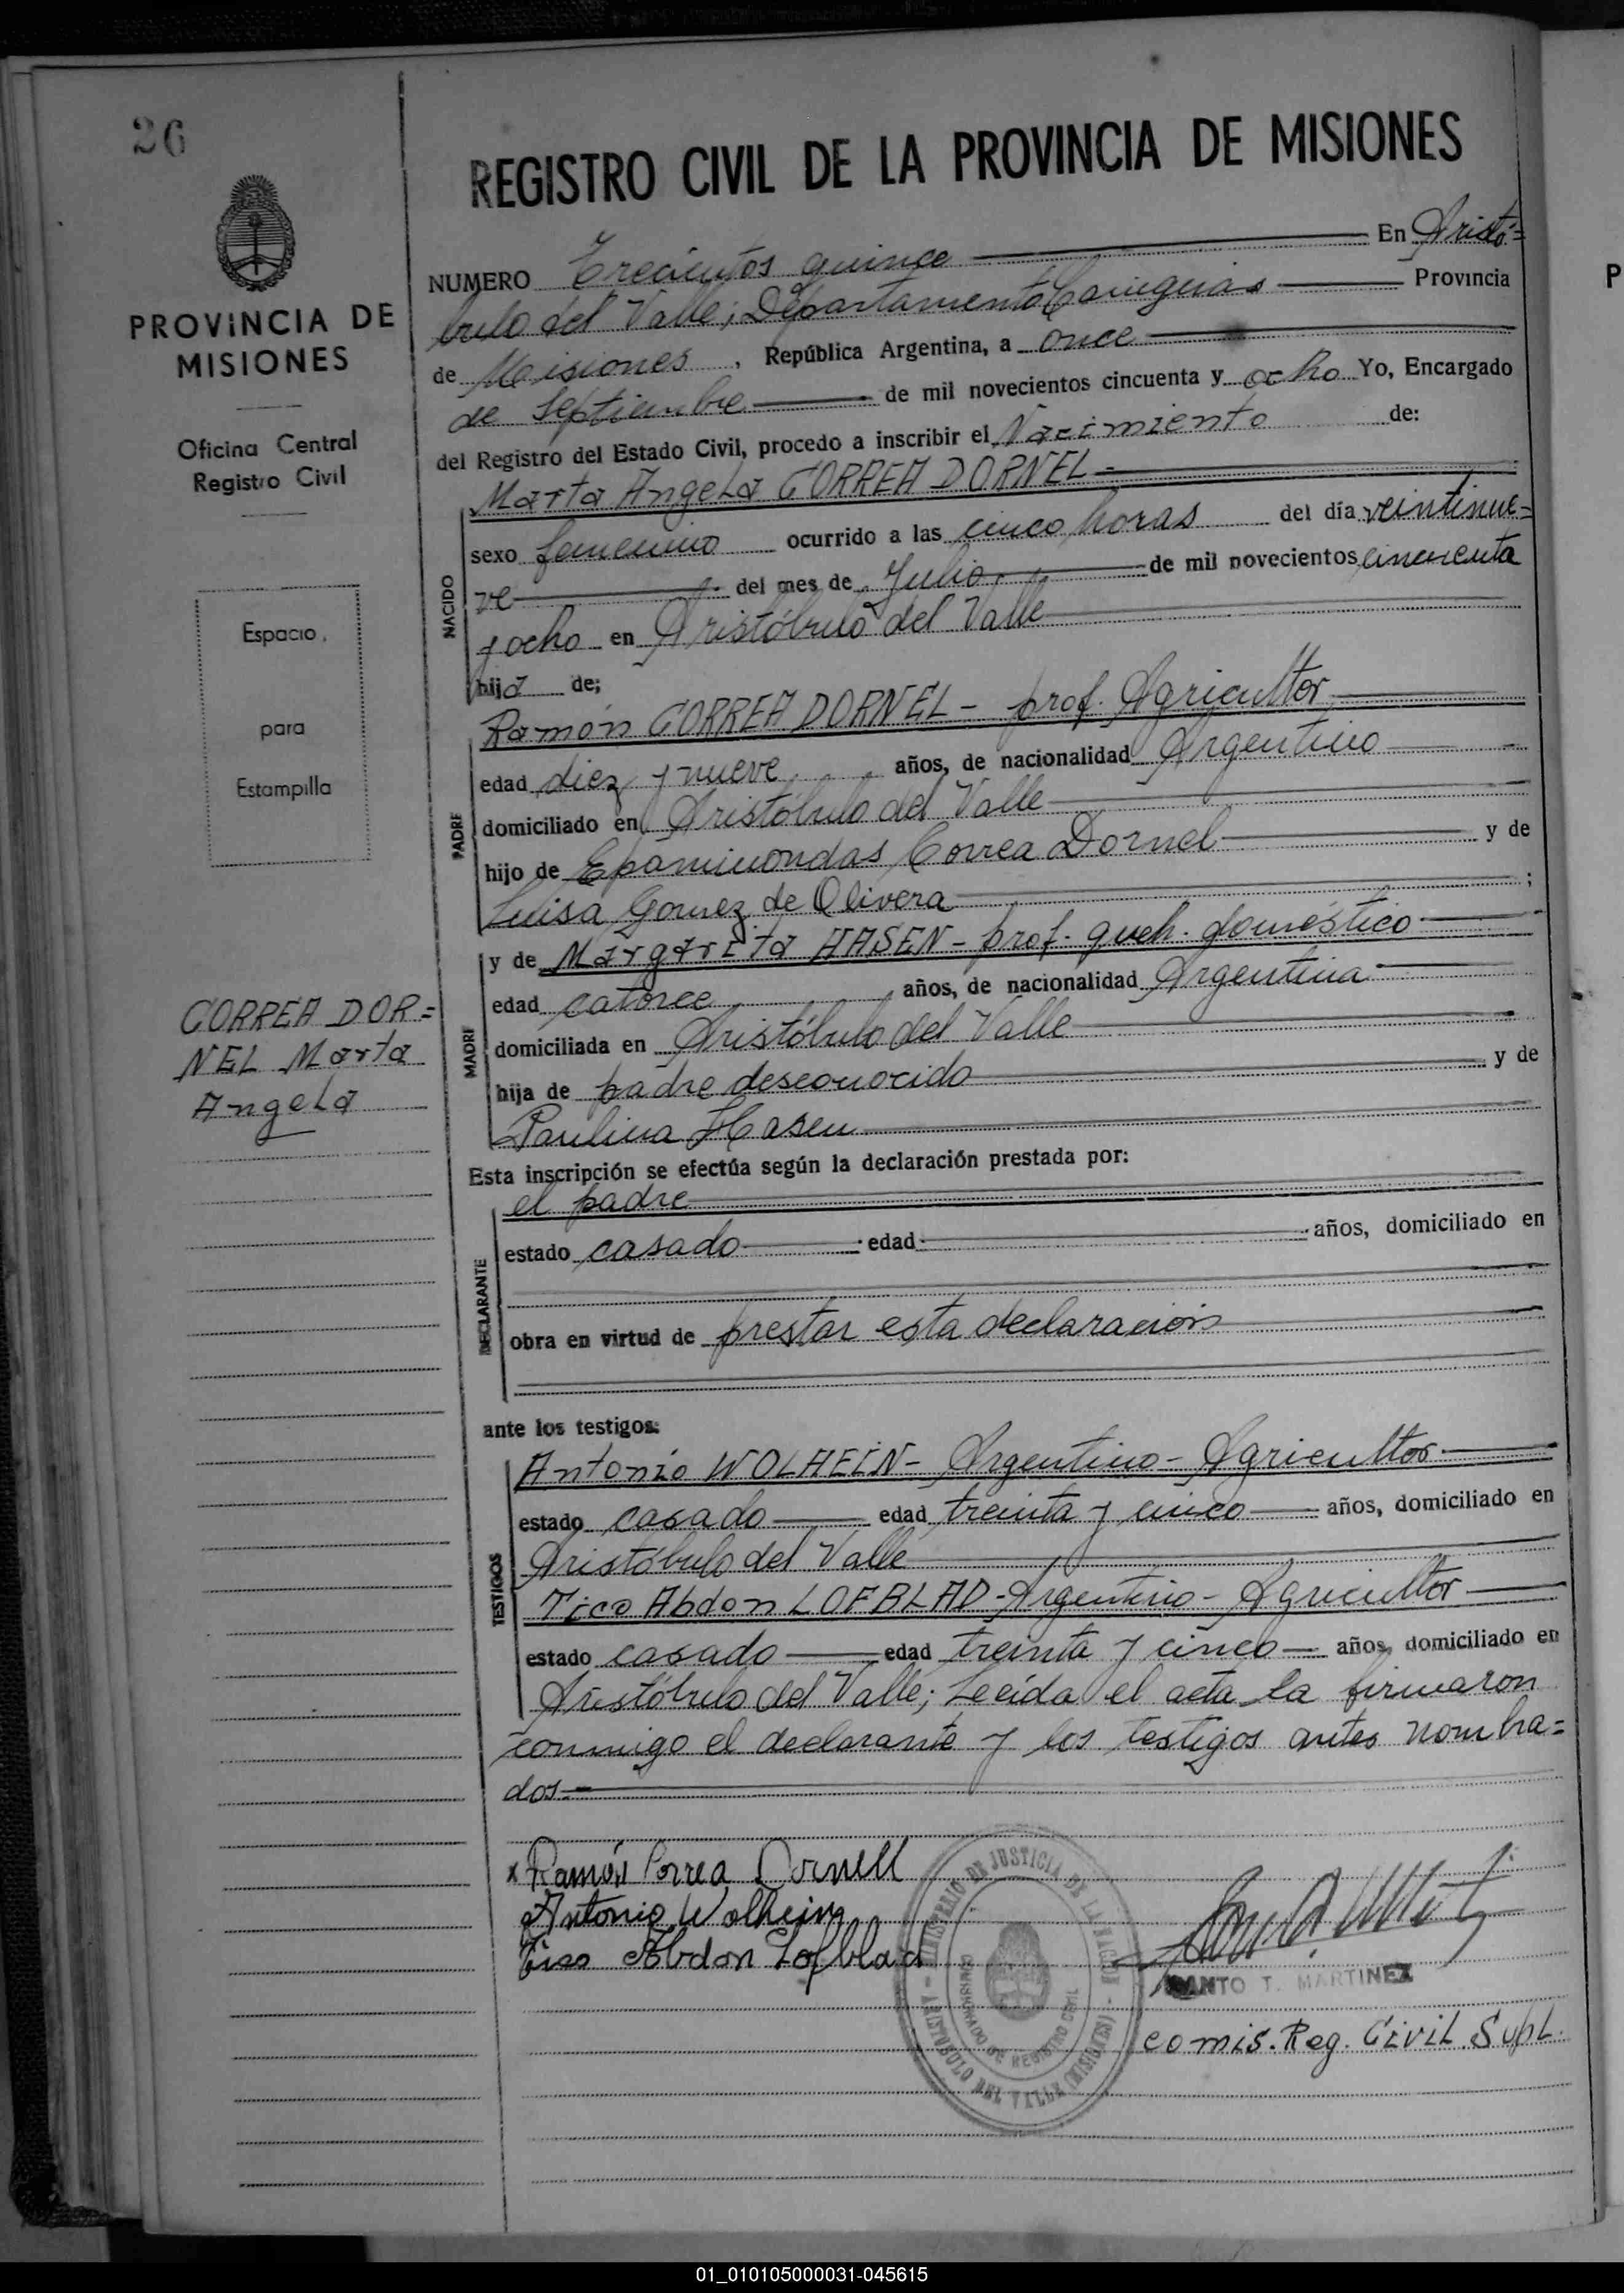 26
REGISTRO CIVIL DE LA PROVINCIA DE MISIONES
PROVINCIA DE
MISIONES
Oficina Central
Registro Civil
Espacio
para
Estampilla
CORREA DOR=
NEL Marta
Angela
NUMERO Trecientos quince En Aristó=
bulo del Valle; Departamento Cainguás Provincia
de Misiones, República Argentina, a once
de Septiembre de mil novecientos cincuenta y ocho Yo, Encargado
del Registro del Estado Civil, procedo a inscribir el Nacimiento de:
Marta Angela CORREA DORNEL
NACIDO
sexo femenino ocurrido a las cinco horas del día veintinue=
ve del mes de Julio de mil novecientos cincuenta
y ocho en Aristóbulo del Valle
hija de;
Ramón CORREA DORNEL - prof. Agricultor
PADRE
edad diez y nueve años, de nacionalidad Argentino
domiciliado en Aristóbulo del Valle
hijo de Epaminondas Correa Dornel y de
Luisa Gomez de Olivera ;
y de Margarita HASEN - prof. queh. doméstico
MADRE
edad catorce, años, de nacionalidad Argentina
domiciliada en Aristóbulo del Valle
hija de padre desconocido y de
Paulina Hasen
Esta inscripción se efectúa según la declaración prestada por:
el padre
DECLARANTE
estado casado edad años, domiciliado en
obra en virtud de prestar esta declaración
ante los testigos:
TESTIGOS
Antonio WOLHEIN - Argentino - Agricultor
estado casado edad treinta y cinco años, domiciliado en
Aristóbulo del Valle
Tico Abdon LOFBLAD - Argentino - Agricultor
estado casado edad treinta y cinco años, domiciliado en
Aristóbulo del Valle; Leída el acta la firmaron
conmigo el declarante y los testigos antes nombra=
dos.=
x Ramón Correa Dornell
Antonio Wolhein
Tico Abdon Lofblad
MINISTERIO DE JUSTICIA DE LA NACION
ARISTOBULO DEL VALLE (MISIONES)
DE REGISTRO CIVIL
SANTO T. MARTINEZ
comis. Reg. Civil Supl.
P
01_010105000031-045615